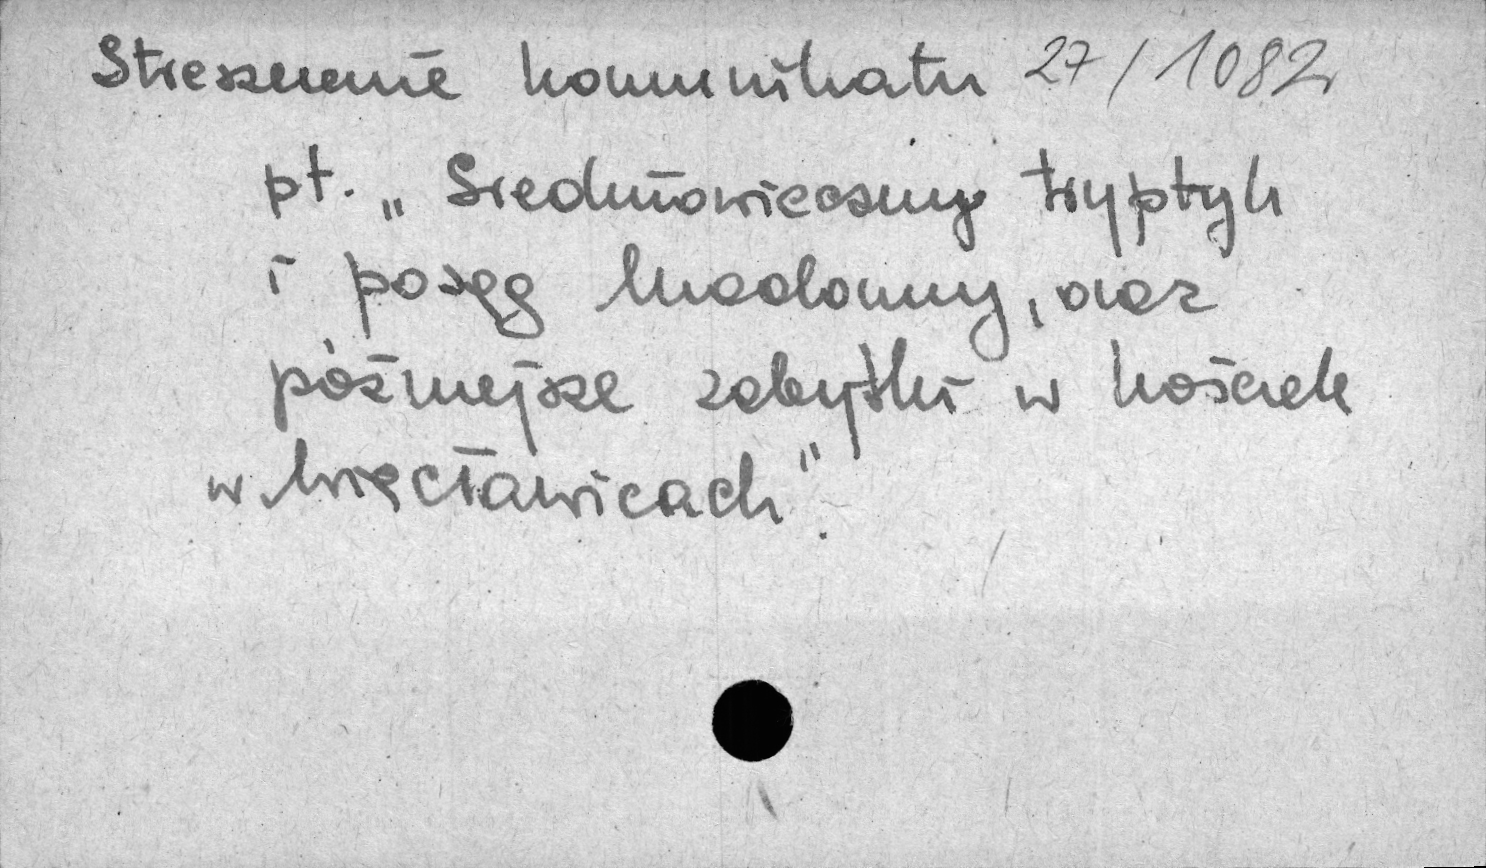 Streszczenie komunikatu 27/1082
pt. „Średniowieczny tryptyk
i posąg Madonny, oraz
późniejsze zabytki w kościele
w Więcławicach".